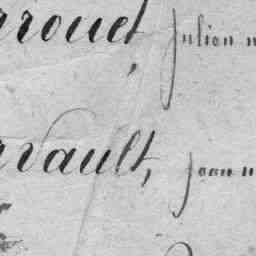 rrouet, Julien
rvault, jean